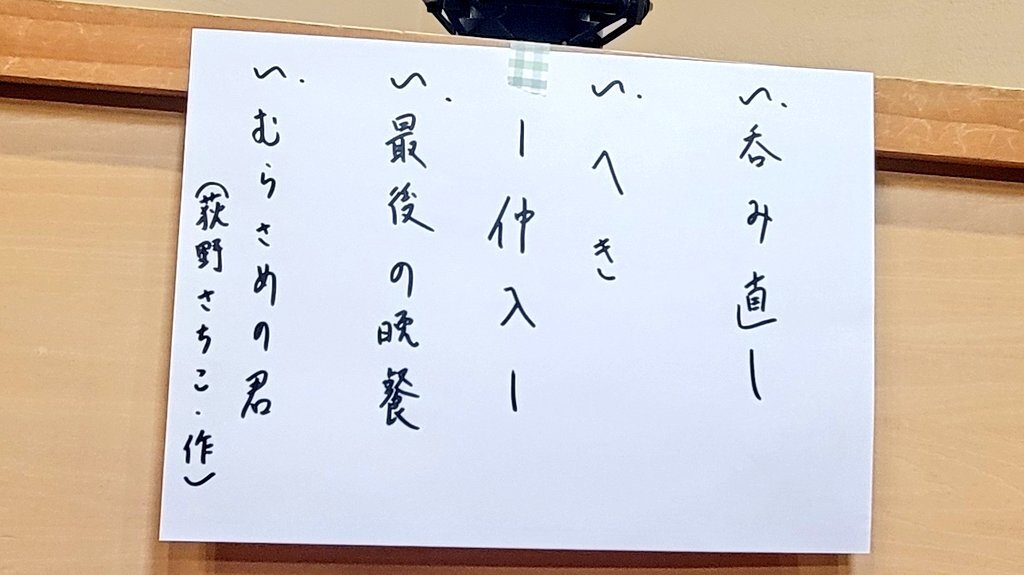 い.呑み直し
い.へき
ー仲入ー
い.最後の晩餐
い.むらさめの君
(荻野さちこ・作)